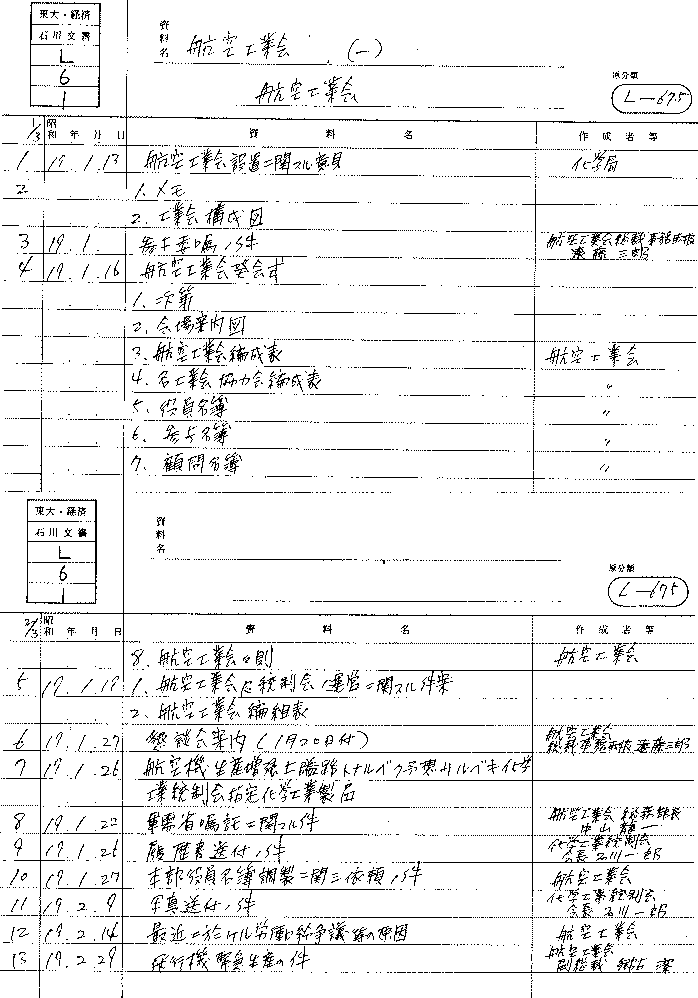 東大・経済
石川文書
L
6
1
資料名 航空工業会 (一)
航空工業会
原分類
L—675
1/3 昭和 年 月 日 資料名 作成者等
1 19.1.13 航空工業会設置ニ関スル意見 化学局
2 1.メモ
2.工業会構成図
3 19.1. 参与委嘱ノ件 航空工業会総裁事務取扱
遠藤三郎
4 19.1.16 航空工業会発会式
1.次第
2.会場案内図
3.航空工業会編成表 航空工業会
4.各工業会協力会編成表 〃
5.役員名簿 〃
6.参与名簿 〃
7.顧問名簿 〃
東大・経済
石川文書
L
6
1
資料名
原分類
L—675
2/3 昭和 年 月 日 資料名 作成者等
8.航空工業会々則 航空工業会
5 19.1.19 1.航空工業会 統制会ノ運営ニ関スル件案
2.航空工業会編組表
6 19.1.27 懇談会案内(1月20日付) 航空工業会
総裁事務取扱 遠藤三郎
7 19.1.26 航空機生産増強上隘路トナルベク予想サルベキ化学
工業統制会指定化学工業製品
8 19.1.22 軍需省嘱託ニ関スル件 航空工業会 総務部長
中山
9 19.1.26 履歴書送付ノ件 化学工業統制会
会長 石川一郎
10 19.1.27 本部役員名簿調製ニ関シ依頼ノ件 航空工業会
11 19.2.9 写真送付ノ件 化学工業統制会
会長 石川一郎
12 19.2.14 最近ニ於ケル労働紛争議 の原因 航空工業会
13 19.2.29 飛行機緊急生産の件 航空工業会
副総裁 郷古 潔